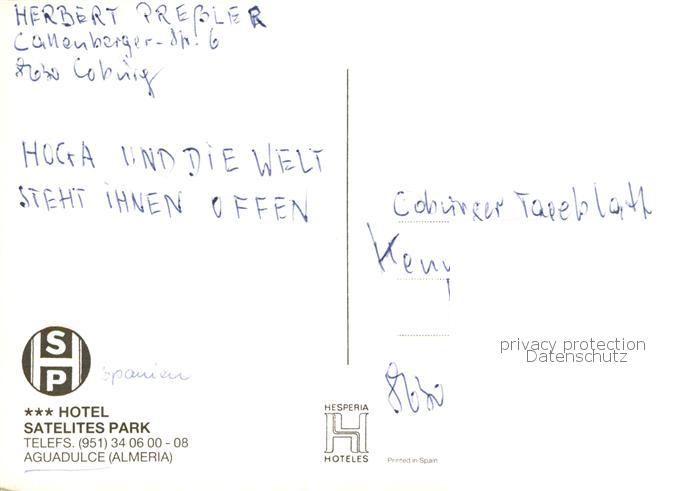 HERBERT PREßLER
Callenberger-Str. 6
8630 Coburg
HOGA UND DIE WELT
STEHT IHNEN OFFEN
Coburger Tageblatt
8630
privacy protection
Datenschutz
S
P
Spanien
*** HOTEL
SATELITES PARK
TELEFS. (951) 34 06 00 - 08
AGUADULCE (ALMERIA)
HESPERIA
H
HOTELES
Printed in Spain